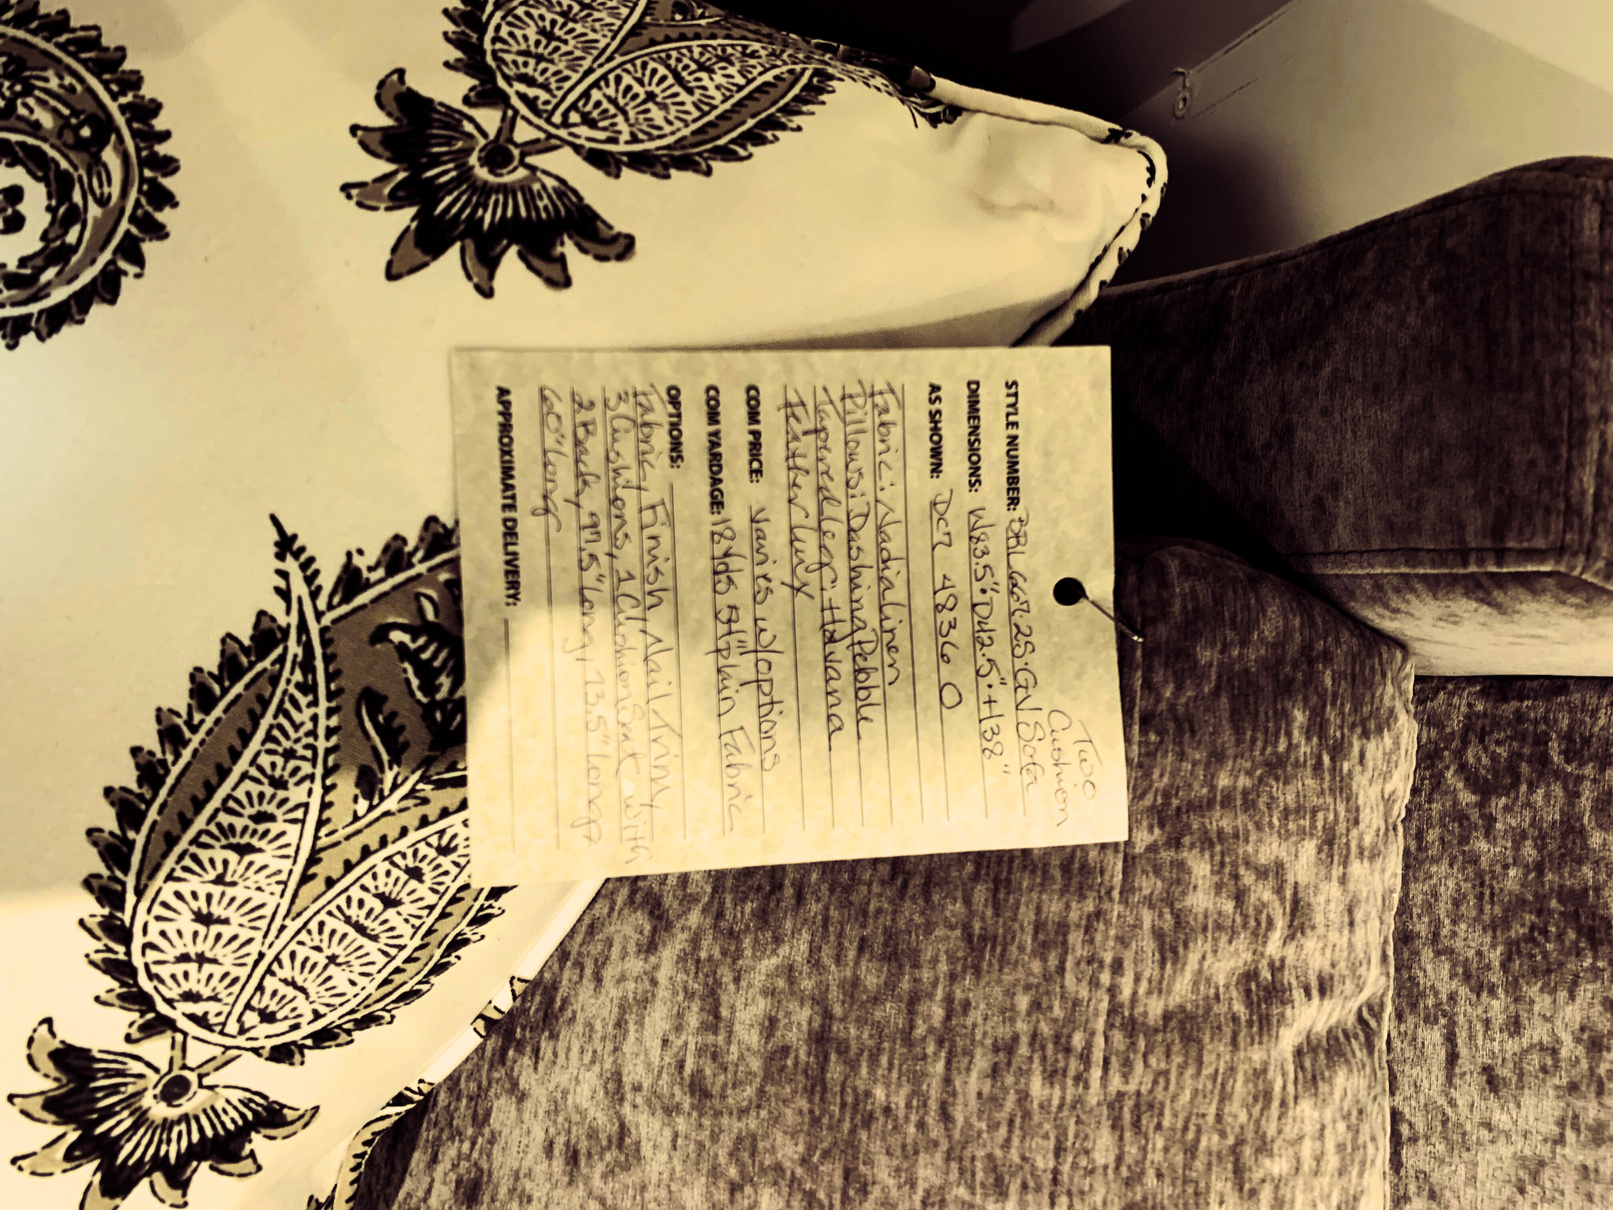 Two
Cushion
STYLE NUMBER: BRL 667-2S-GV Sofa
DIMENSIONS: W83.5" D42.5" H38"
AS SHOWN: DC7 4836 O
Fabric: Nadia Linen
Pillows: Dashing Pebble
Tapered leg: Havana
Feather Lux
COM PRICE: Varies w/options
COM YARDAGE: 18 Yds 54" plain Fabric
OPTIONS:
Fabric, Finish, Nail Trim,
3 Cushions, 1 Cushion Seat with
2 Back, 97.5" long, 73.5" long,
60" long
APPROXIMATE DELIVERY: